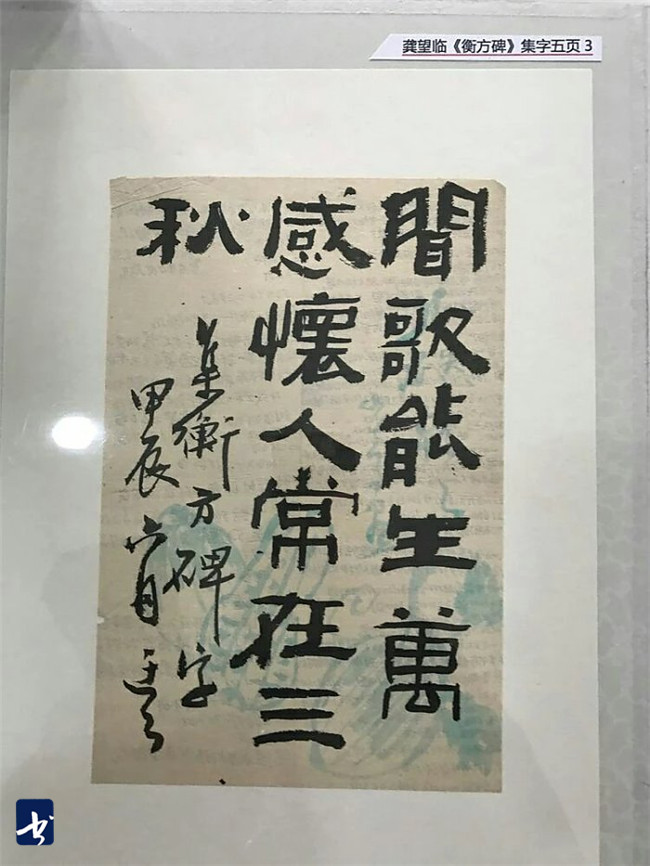 龚望临《衡方碑》集字五页 3
聞歌能生萬
感懷人常在三
秋
集衡方碑字
甲辰六月